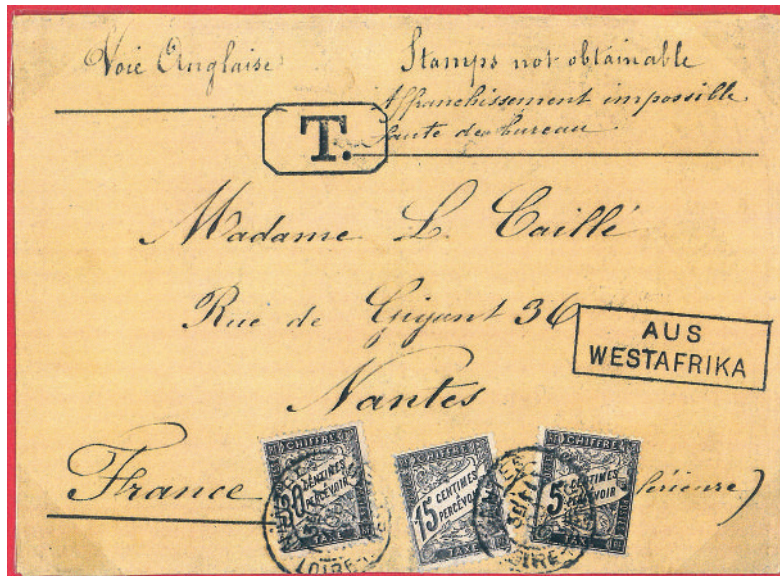 Voie Anglaise
Stamps not obtainable
Affranchissement impossible
faute de bureau
T.
Madame L. Caillé
Rue de Gigant 36
AUS
WESTAFRIKA
Nantes
France
érieure)
CHIFFRE
30 CENTIMES
PERCEVOIR
TAXE
CHIFFRE
15 CENTIMES
PERCEVOIR
TAXE
CHIFFRE
5 CENTIMES
PERCEVOIR
TAXE
NANTES
LOIRE
NANTES
LOIRE